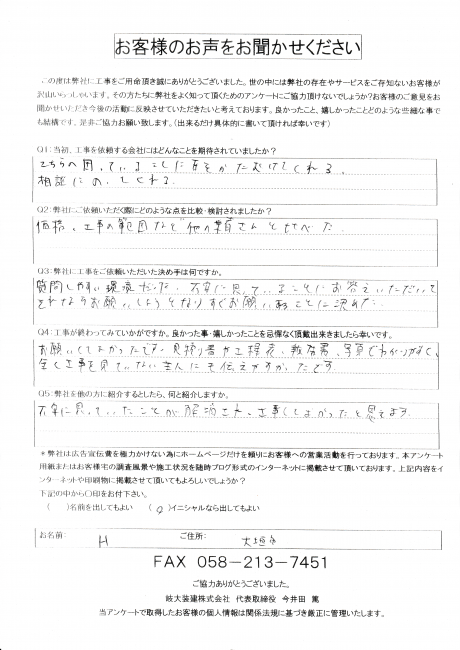 お客様のお声をお聞かせください
この度は弊社に工事をご用命頂き誠にありがとうございました。世の中には弊社の存在やサービスをご存知ないお客様が
沢山いらっしゃいます。その方たちに弊社をよく知って頂くためのアンケートにご協力頂けないでしょうか?お客様のご意見をお
聞かせいただき今後の活動に反映させていただきたいと考えております。良かったこと、嬉しかったことどのような些細な事で
も結構です。是非ご協力お願い致します。(出来るだけ具体的に書いて頂ければ幸いです)
Q1:当初、工事を依頼する会社にはどんなことを期待されていましたか?
こちらの困っていることに耳をかたむけてくれる。
相談にのってくれる。
Q2:弊社にご依頼いただく際にどのような点を比較・検討されましたか?
価格、工事の範囲など他の業者さんとくらべた。
Q3:弊社に工事をご依頼いただいた決め手は何ですか。
質問しやすい環境だった。不安に思っていることにお答えいただいて
それならお願いしようとなりすぐお願いすることに決めた。
Q4:工事が終わってみていかがですか。良かった事・嬉しかったことを忌憚なく頂戴出来きましたら幸いです。
お願いしてよかったです。見積り書や工程表、報告書、写真でわかりやすく、
全く工事を見ていない主人にも伝えやすかったです
Q5:弊社を他の方に紹介するとしたら、何と紹介しますか。
不安に思っていたことが解消され、工事してよかったと思えます。
*弊社は広告宣伝費を極力かけない為にホームページだけを頼りにお客様への営業活動を行っております。本アンケート
用紙またはお客様宅の調査風景や施工状況を随時ブログ形式のインターネットに掲載させて頂いております。上記内容をイ
ンターネットや印刷物に掲載させて頂いてもよろしいでしょうか?
下記の中から〇印をお付下さい。
( )名前を出してもよい (○)イニシャルなら出してもよい
お名前: H ご住所: 大垣市
FAX 058-213-7451
ご協力ありがとうございました。
岐大装建株式会社 代表取締役 今井田 篤
当アンケートで取得したお客様の個人情報は関係法規に基づき厳正に管理いたします。